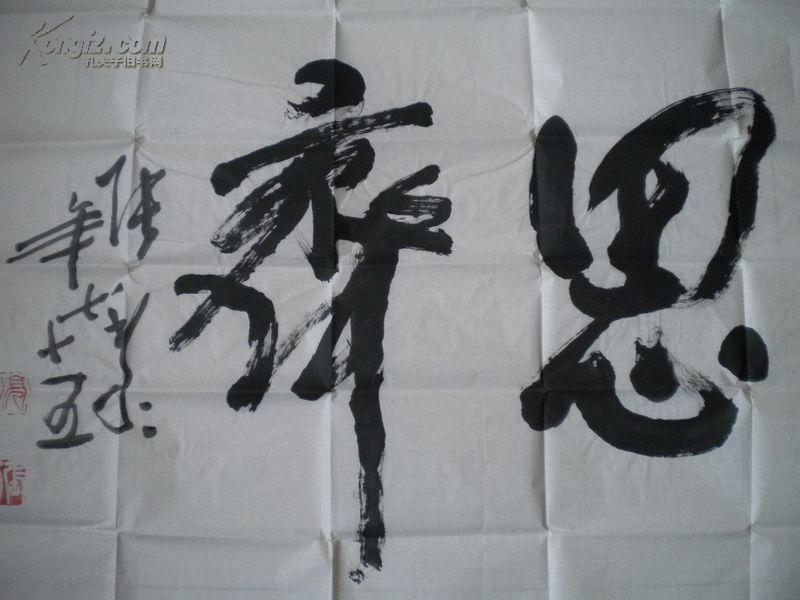 思齊
年七十五
Kongfz.com
孔夫子旧书网